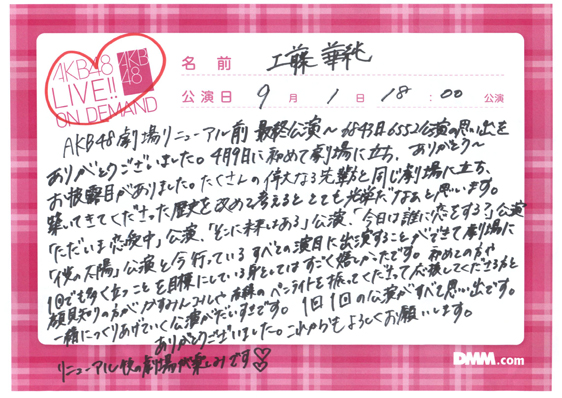 AKB48
LIVE!!
ON DEMAND
AKB
48
名前 工藤華純
公演日 9月1日 18:00 公演
AKB48劇場リニューアル前 最終公演〜6843日6552公演の思い出を
ありがとうございました。4月9日に初めて劇場に立ち、ありがとう〜
お披露目がありました。たくさんの偉大なる先輩と同じ劇場に立ち、
築いてきてくださった歴史を改めて考えるととても光栄だなぁと思います。
「ただいま恋愛中」公演、「そこに未来はある」公演、「今日は誰に恋をする?」公演
「僕の太陽」公演と今行っているすべての演目に出演することができて劇場に
1回でも多く立つことを目標にしている身としてはすごく嬉しかったです。初めての方や
顔見知りの方がかすみんうちわや のペンライトを振ってくださって応援してくださる方と
一緒につくりあげていく公演がだいすきです。1回1回の公演がすべて思い出です。
ありがとうございました。これからもよろしくお願いします。
リニューアル後の劇場が楽しみです♡
DMM.com